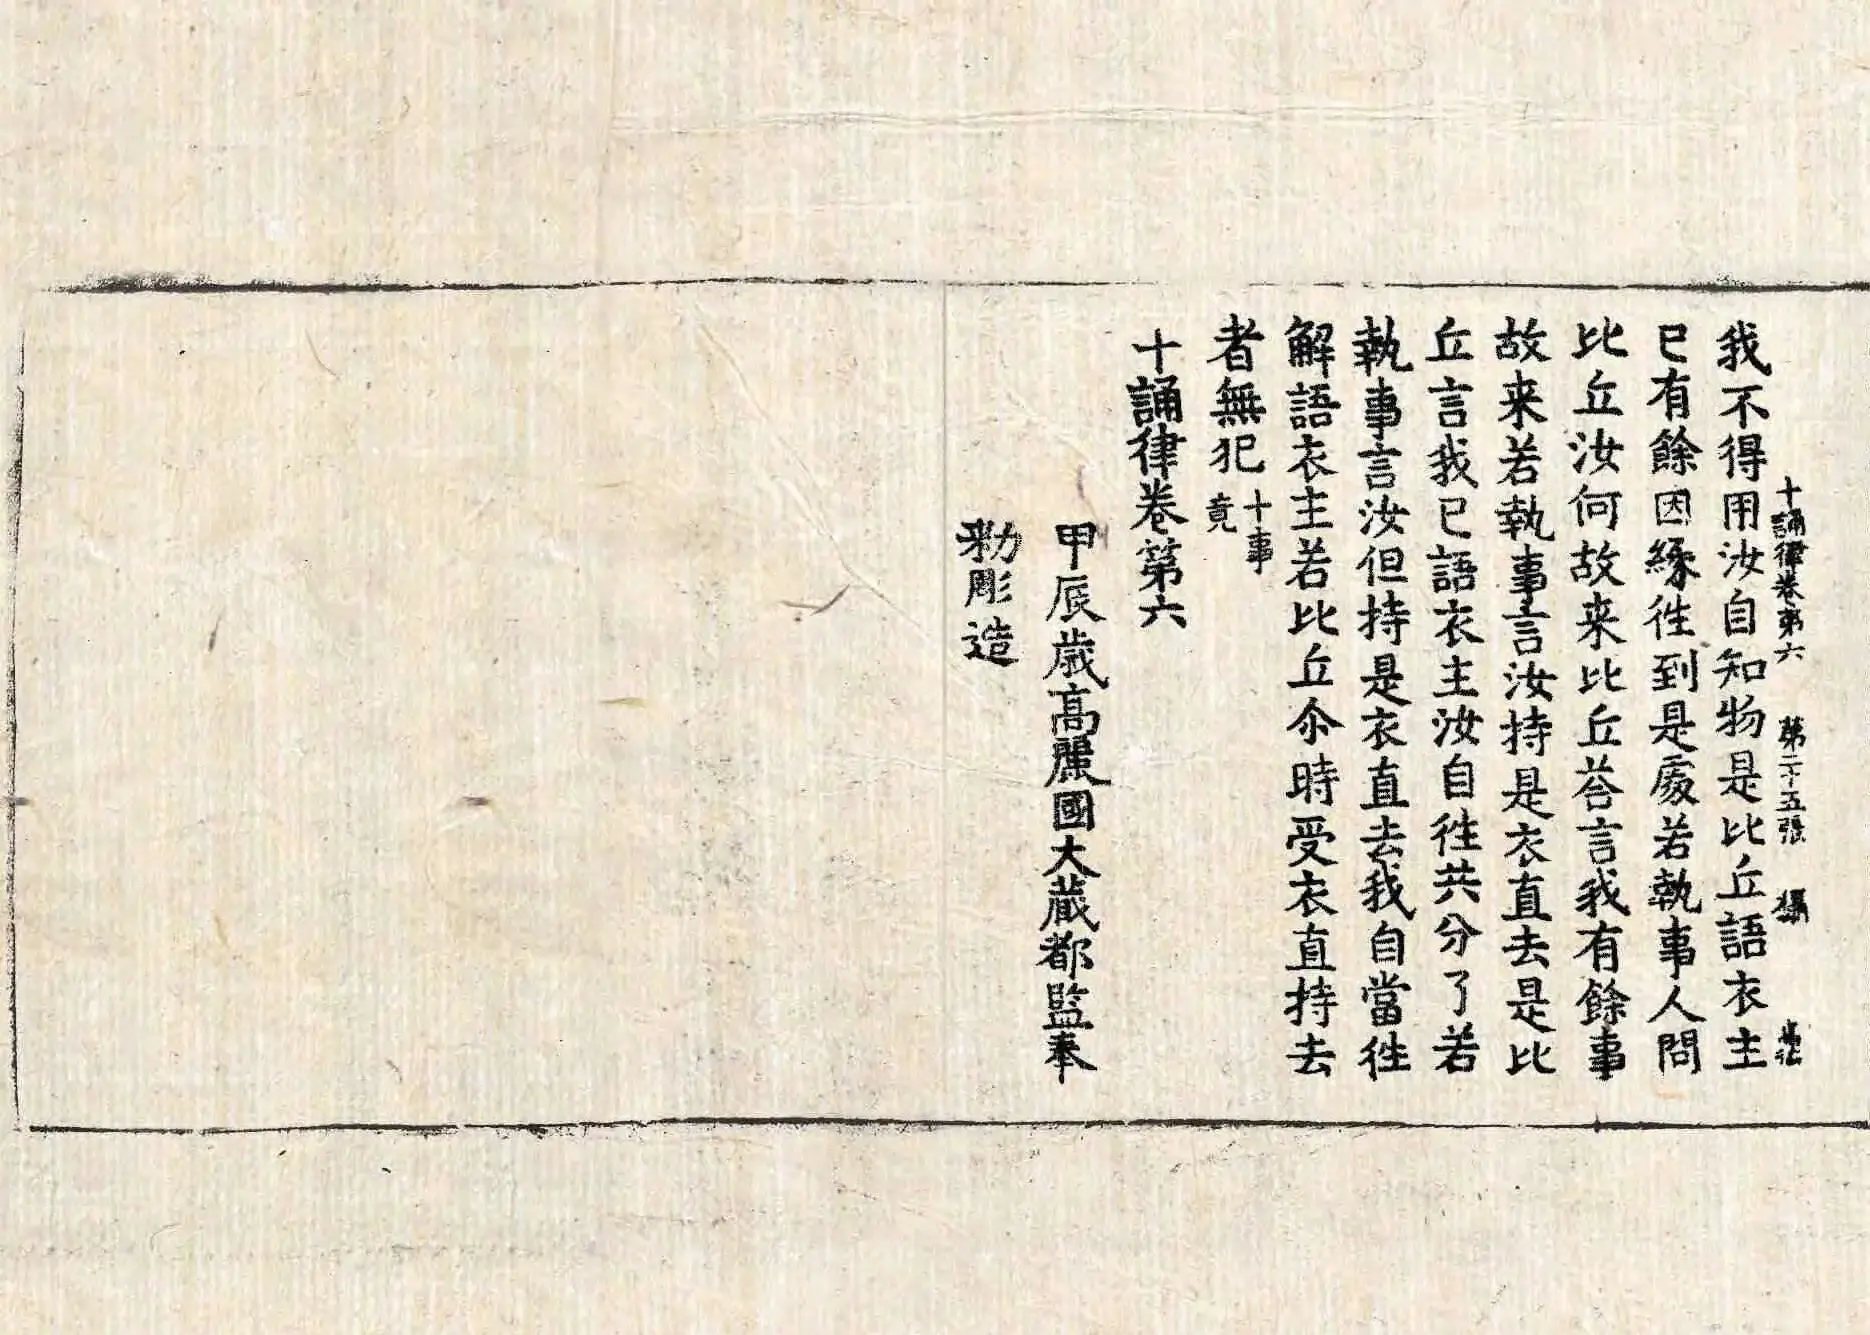 十誦律卷第六 第二十五張 攝
我不得用汝自知物是比丘語衣主
已有餘因緣徃到是處若執事人問
比丘汝何故来比丘荅言我有餘事
故来若執事言汝持是衣直去是比
丘言我已語衣主汝自徃共分了若
執事言汝但持是衣直去我自當徃
解語衣主若比丘尒時受衣直持去
者無犯 十事
竟
十誦律卷第六
甲辰歳高麗國大藏都監奉
勅彫造